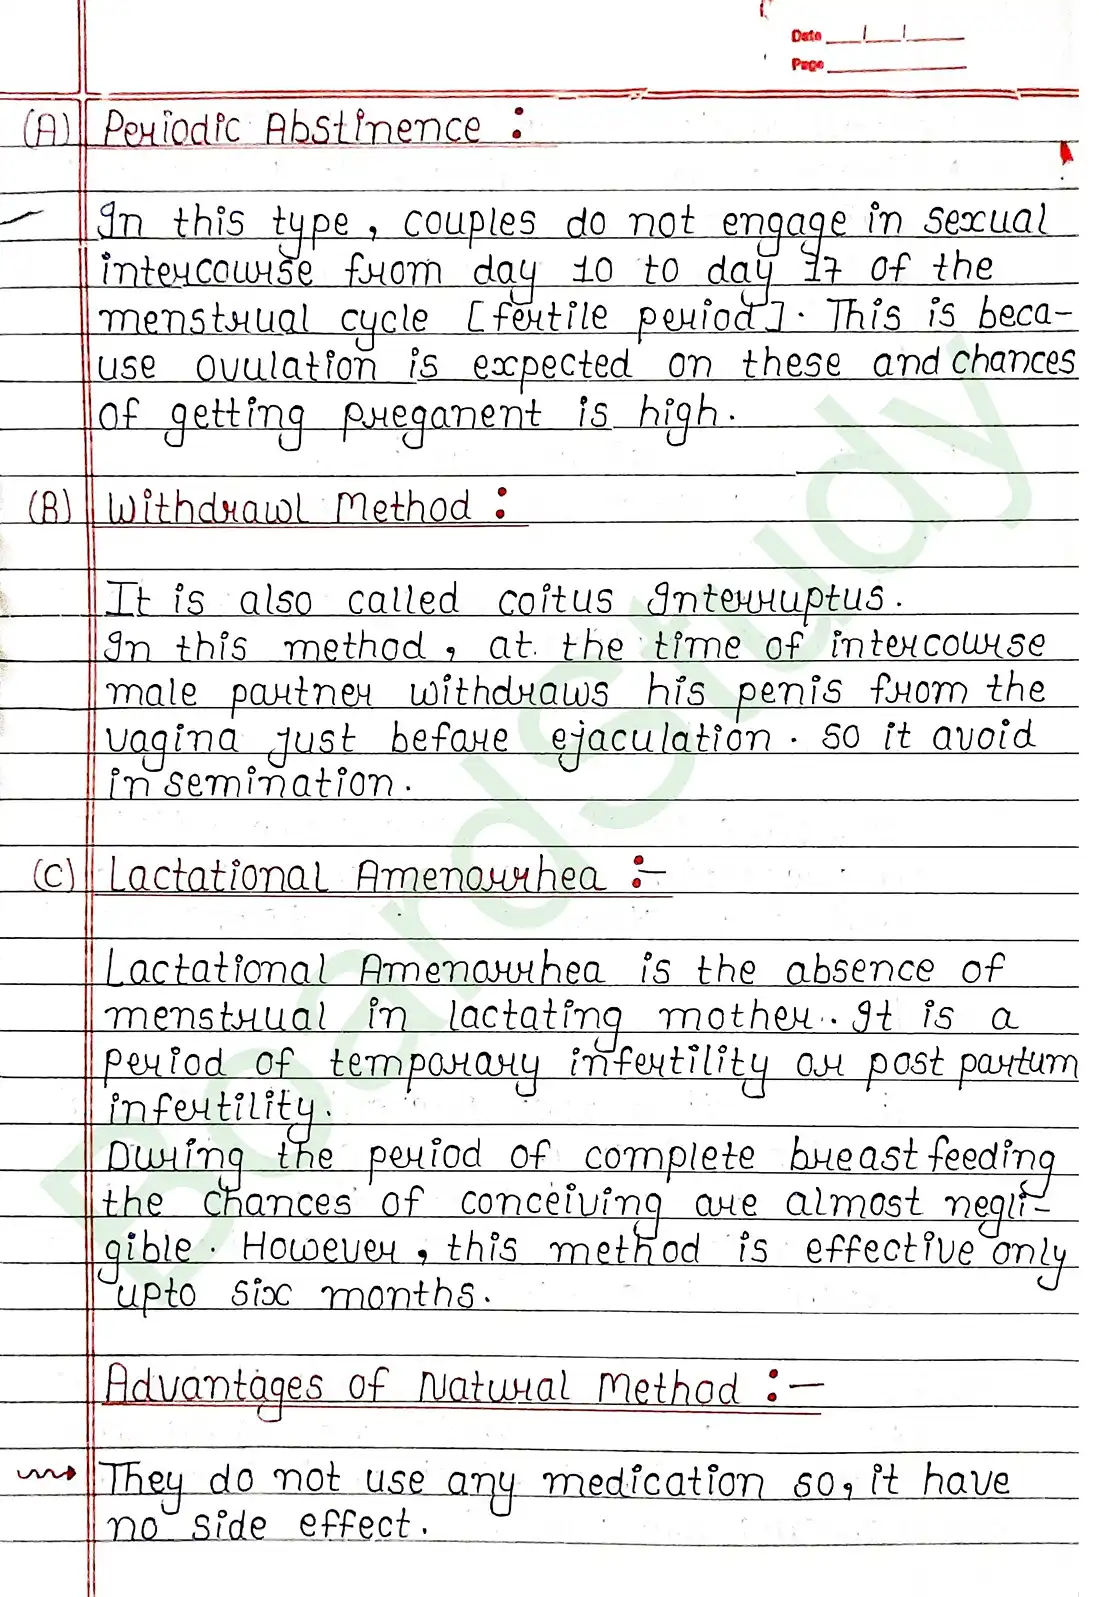 Date
Page
(A) Periodic Abstinence :
In this type, couples do not engage in sexual
intercourse from day 10 to day 17 of the
menstrual cycle [fertile period]. This is beca-
use ovulation is expected on these and chances
of getting preganent is high.
(B) Withdrawl Method :
It is also called coitus Interruptus.
In this method, at the time of intercourse
male partner withdraws his penis from the
vagina just before ejaculation. So it avoid
in semination.
(C) Lactational Amenorrhea :-
Lactational Amenorrhea is the absence of
menstrual in lactating mother. It is a
period of temporary infertility or post partum
infertility.
During the period of complete breast feeding
the chances of conceiving are almost negli-
gible. However, this method is effective only
upto six months.
Advantages of Natural Method :-
They do not use any medication so, it have
no side effect.
BoardStudy